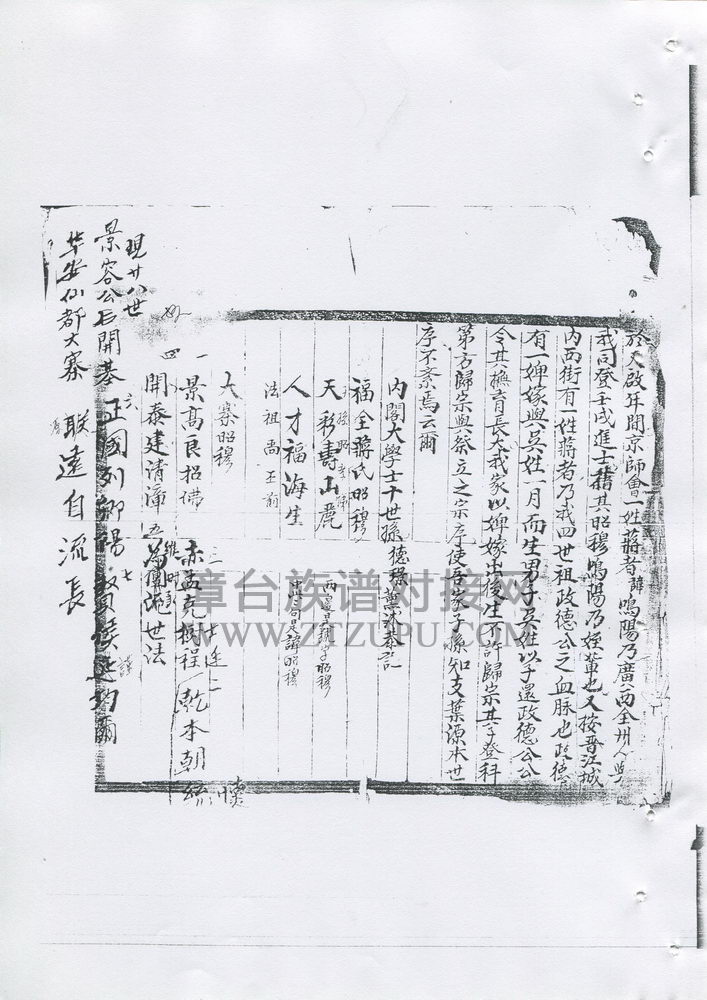 於天啟年間京師會一姓蔣者諱鳴陽乃廣西全州人與
我同登壬戌進士藉其昭穆鳴陽乃姪輩也又按晋江城
内西街有一姓蔣者乃我四世祖政德公之血脉也政德
有一婢嫁與吳姓一月而生男子吳姓以子還政德公公
令其撫育長大我家以婢嫁出後生不許歸宗其子登科
第方歸宗與祭立之宗序使吾家子孫知支葉源本世
序不紊焉云爾
内閣大學士十世孫德璟薰沐恭記
福全蔣氏昭穆
天彩壽山麗
人才福海生
法祖禹丕前
兩邊是字昭穆
此六句是諱昭穆
大寨昭穆
一景高良招佛
三
赤孟克樹程
乾本朝
四開泰建清漳
五
世法
六正國列卿
七
現廿八世
景容公長開基
华安仙都大寨
联遠自流長
章台族谱对接网
WWW.ZTZUPU.COM